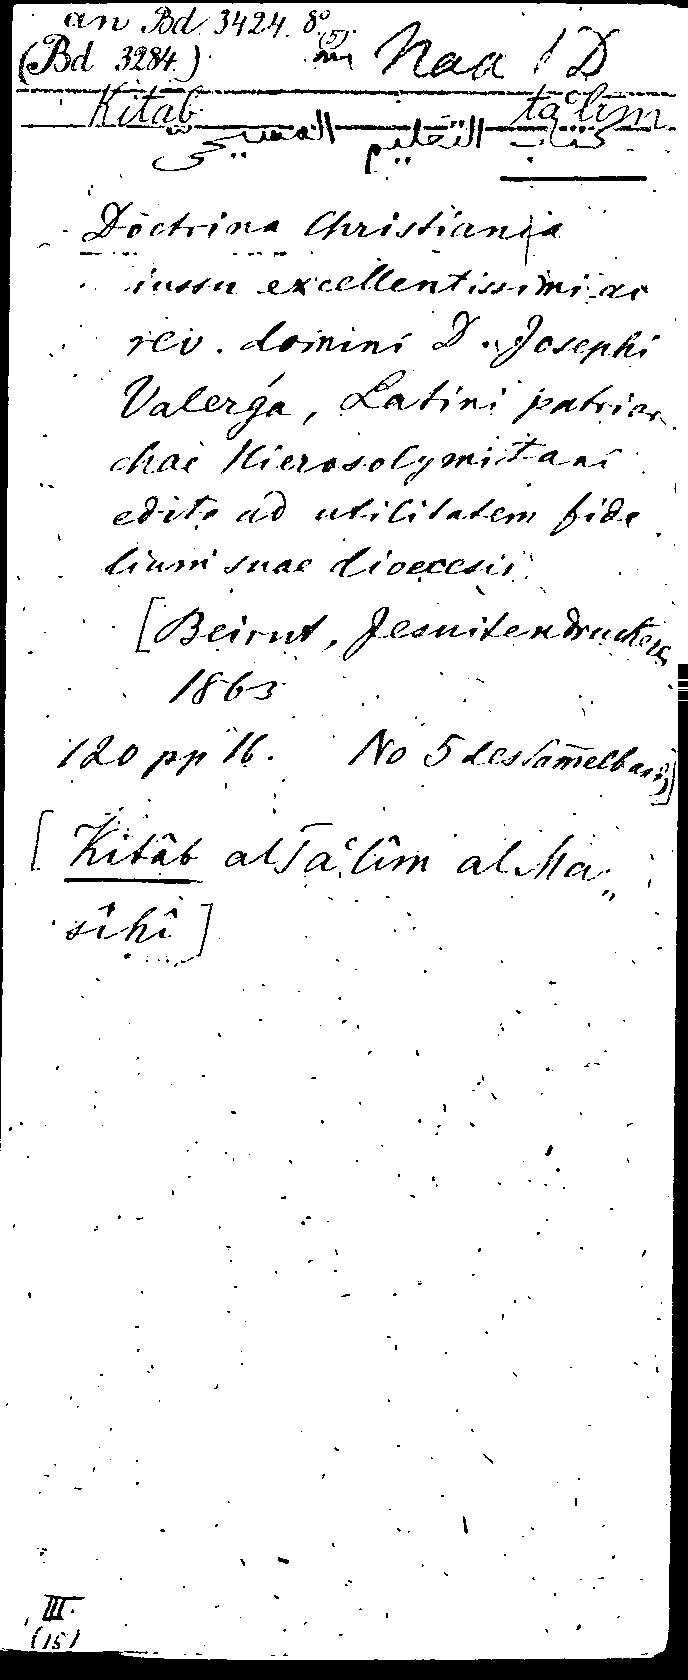 an Bd. 3424. 8° (5)
(Bd 3284.) Naa 1D
Kitab ta'lim
كتاب التعليم المسيحى
Doctrina Christiania
iussu excellentissimi ac
rev. domini D. Josephi
Valerga, Latini patriar
chae Hierosolymitani
edita ad utilitatem fide
lium suae dioecesis
[Beirut, Jesuitendruckerei
1863
120 pp 16. No 5 des Sam̅elbands]
[Kitâb al Ta‘lîm al Ma„
sîhî]
III.
(15)